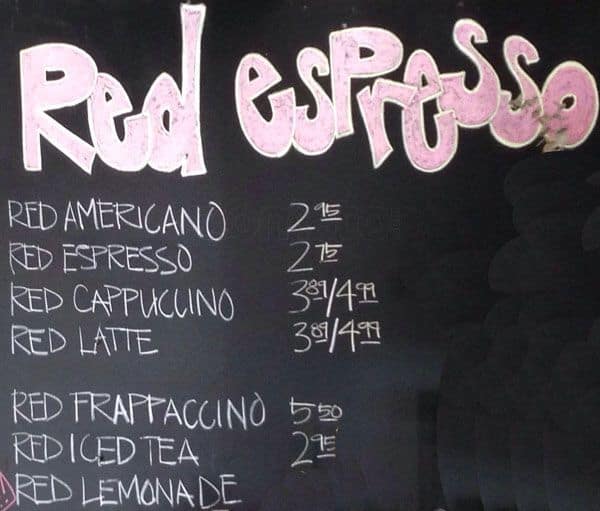 Red espresso
RED AMERICANO 2.95
RED ESPRESSO 2.75
RED CAPPUCCINO 3.89/4.99
RED LATTE 3.89/4.99
RED FRAPPACCINO 5.50
RED ICED TEA 2.95
RED LEMONADE